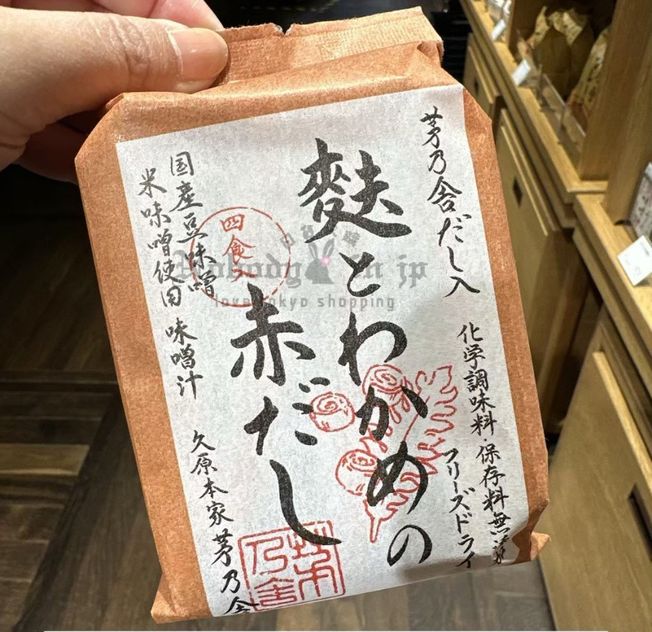 茅乃舎だし入
化学調味料・保存料無添
フリーズドライ
麩とわかめの
赤だし
四食
国産豆味噌
米味噌使用 味噌汁
久原本家 茅乃舎
茅乃舎
Nobody in jp
love tokyo shopping